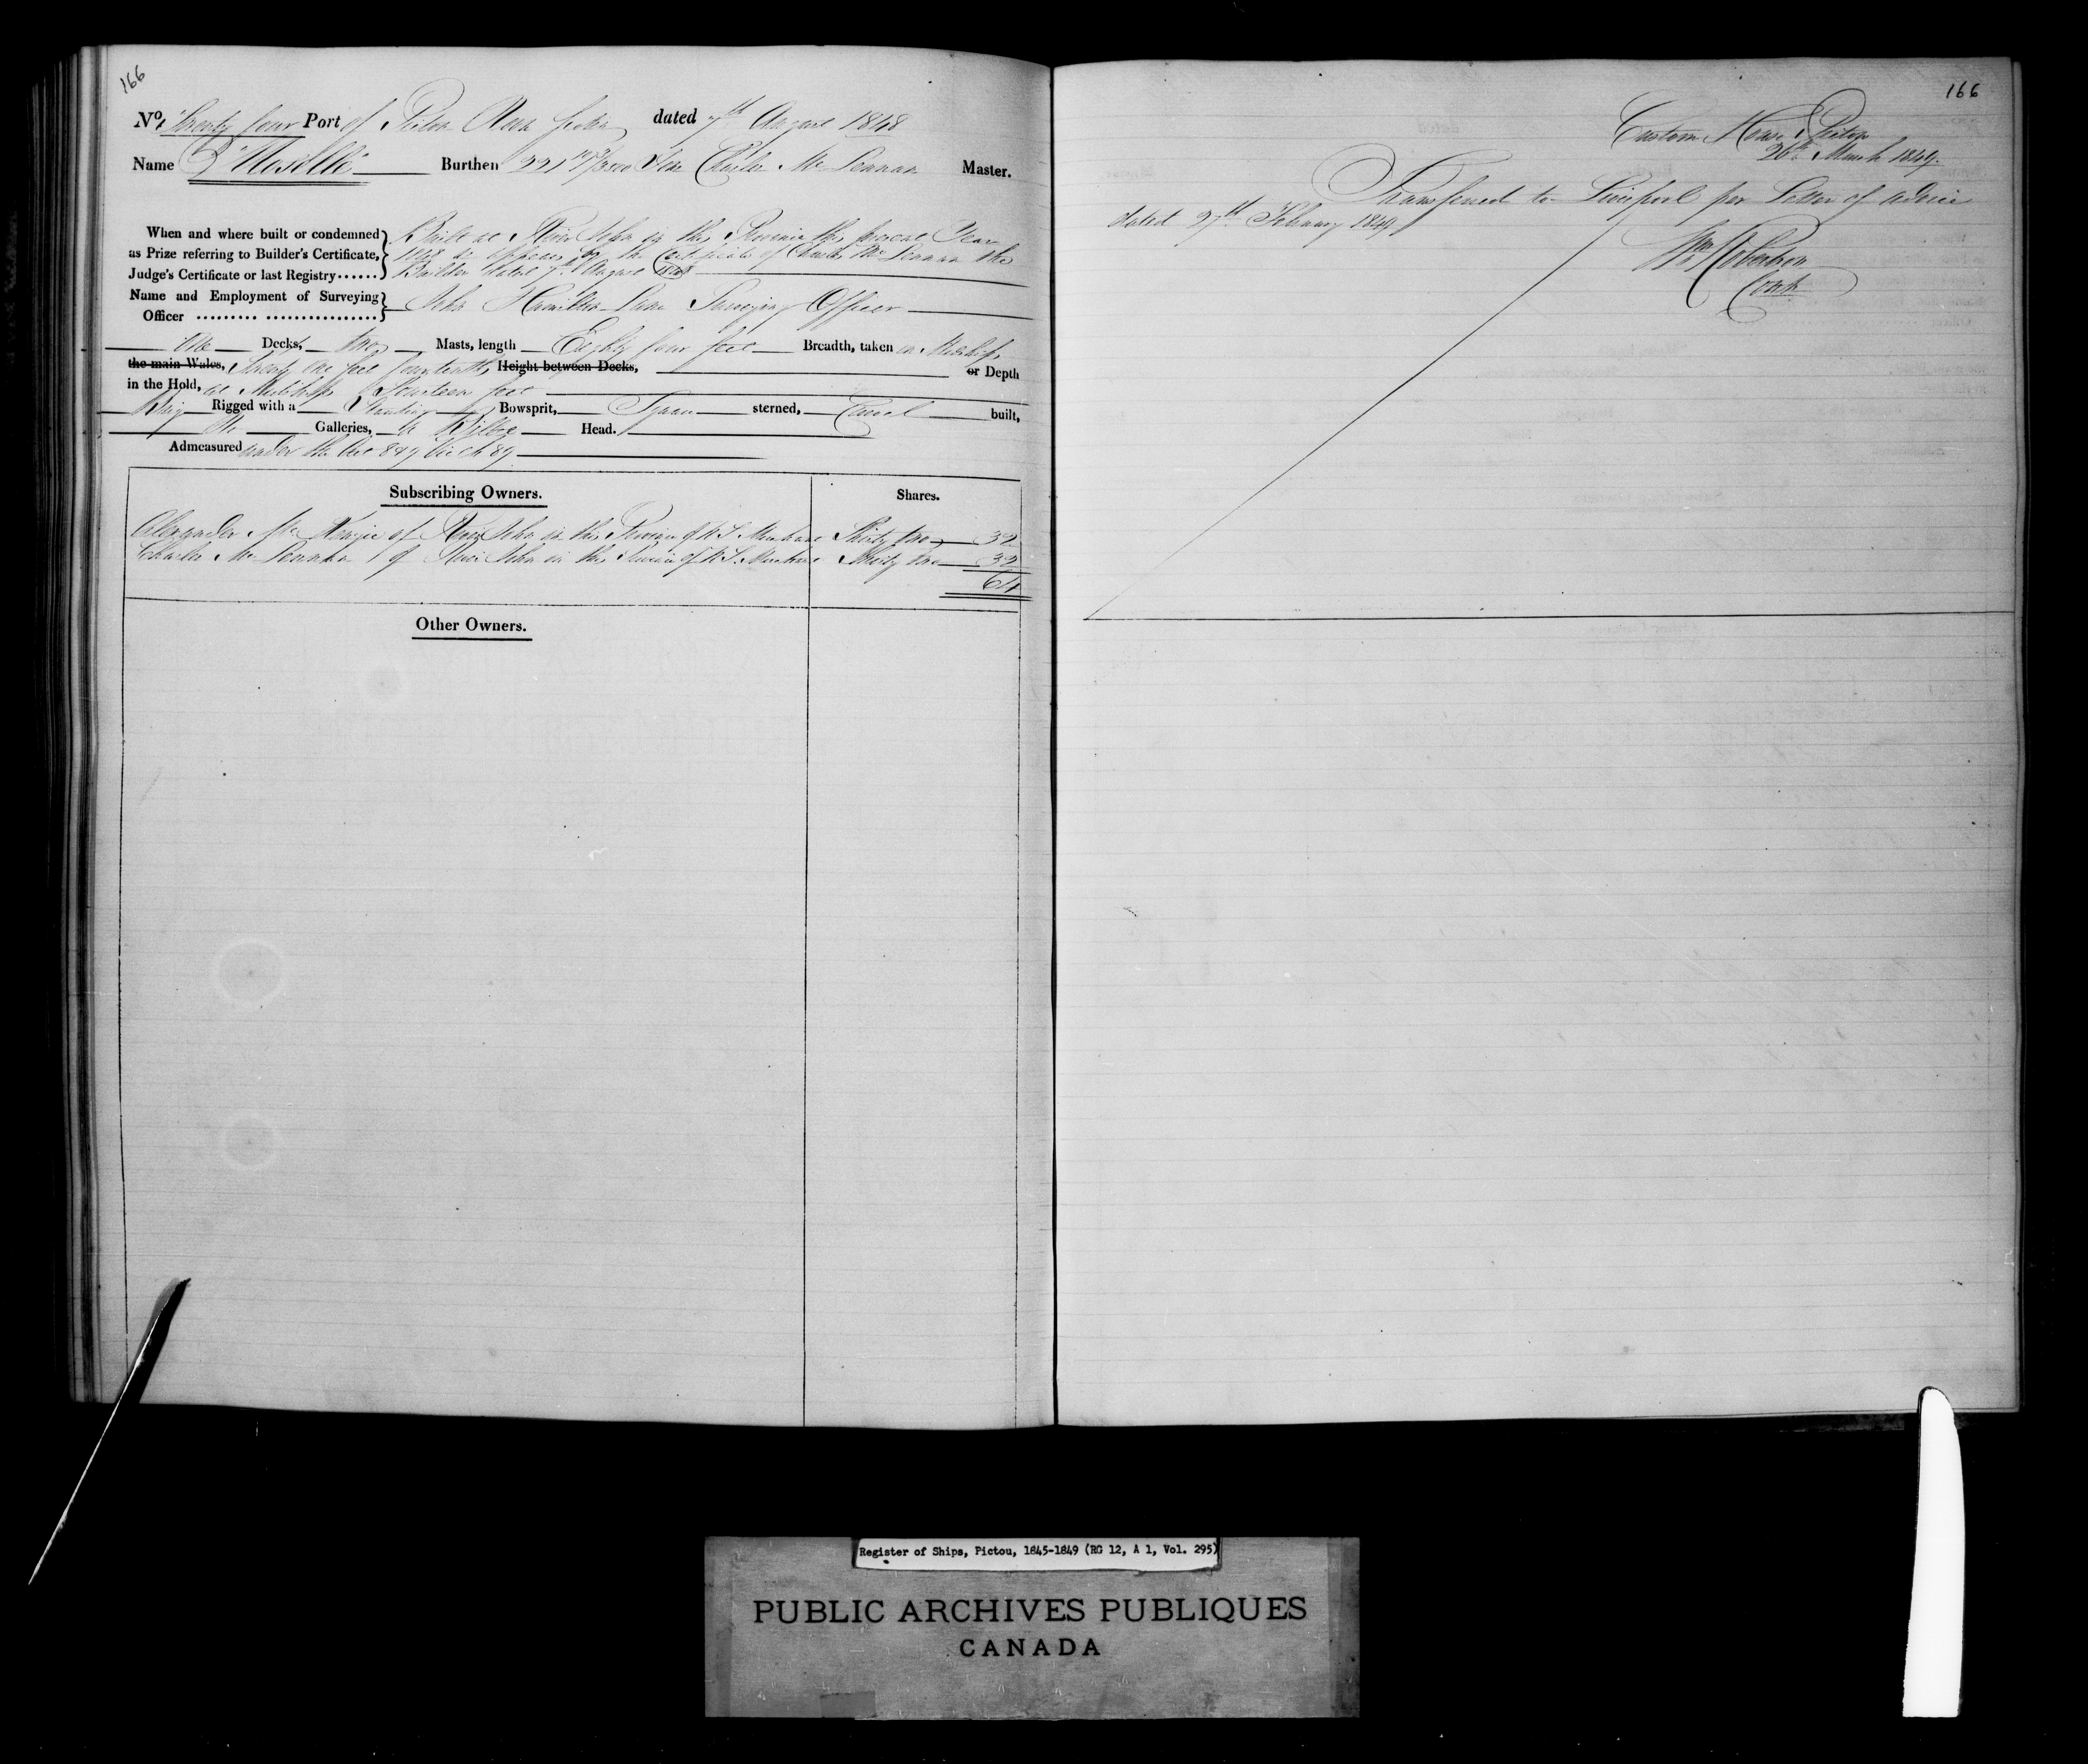 166
No. Twenty four Port of Pictou Nova Scotia dated 7th August 1848
Name "Roselle" Burthen 221 Tons Charles McLennan Master.
When and where built or condemned
as Prize referring to Builder's Certificate,
Judge's Certificate or last Registry......
Built at River John in this Province this present Year
1848 as appears by the Certificate of Charles McLennan the
Builder dated 7th August 1848
Name and Employment of Surveying
Officer ......... ................
John Hamilton Lane Surveying Officer
One Decks, two Masts, length Eighty four feet Breadth, taken in Midships
the main Wales, Twenty one feet four tenths, Height between Decks, or Depth
in the Hold, at Midships Fourteen feet
Brig Rigged with a Standing Bowsprit, Square sterned, Carvel built,
No Galleries, a Billet Head.
Admeasured under the Act 8 & 9 Vic Ch 89
Subscribing Owners. Shares.
Alexander McKenzie of River John in this Province of N.S. Merchant Thirty two 32
Charles McLennan of River John in this Province of N.S. Merchant Thirty two 32
64
Other Owners.
166
Custom House Pictou
26th March 1849.
Transferred to Liverpool per Letter of advice
dated 27th February 1849
Wm Robertson
Register of Ships, Pictou, 1845-1849 (RG 12, A 1, Vol. 295)
PUBLIC ARCHIVES PUBLIQUES
CANADA